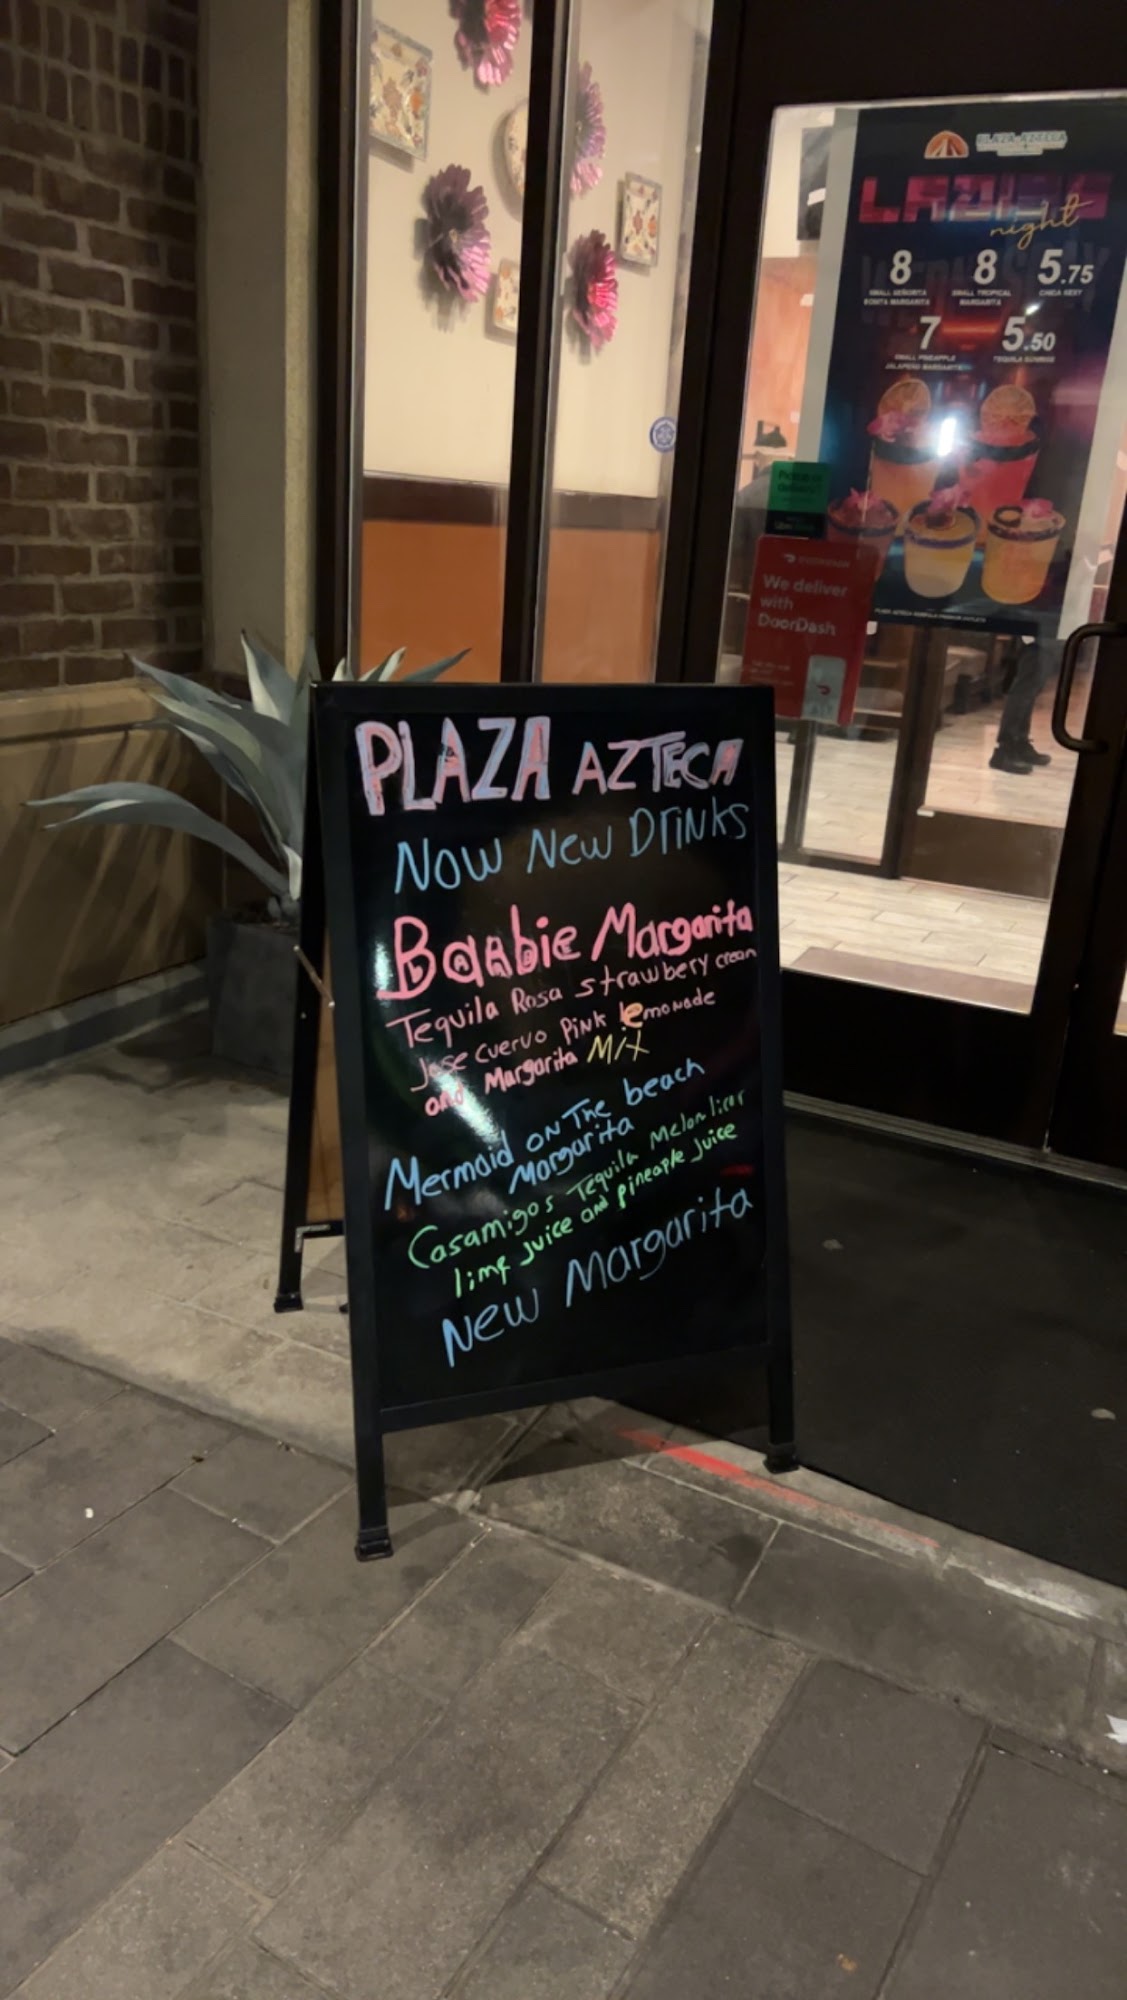 PLAZA AZTECA
Now New Drinks
Barbie Margarita
Tequila Rosa strawbery cream
Jose cuervo Pink lemonade
and Margarita Mix
Mermaid on The beach
Margarita
Casamigos Tequila Melon licor
lime juice and pineaple juice
New Margarita
PLAZA AZTECA
night
8 8 5.75
SMALL SEÑORITA SMALL TROPICAL
BONITA MARGARITA MARGARITA CHICA SEXY
7 5.50
SMALL PINEAPPLE TEQUILA SUNRISE
JALAPEÑO MARGARITA
DOORDASH
We deliver
with
DoorDash